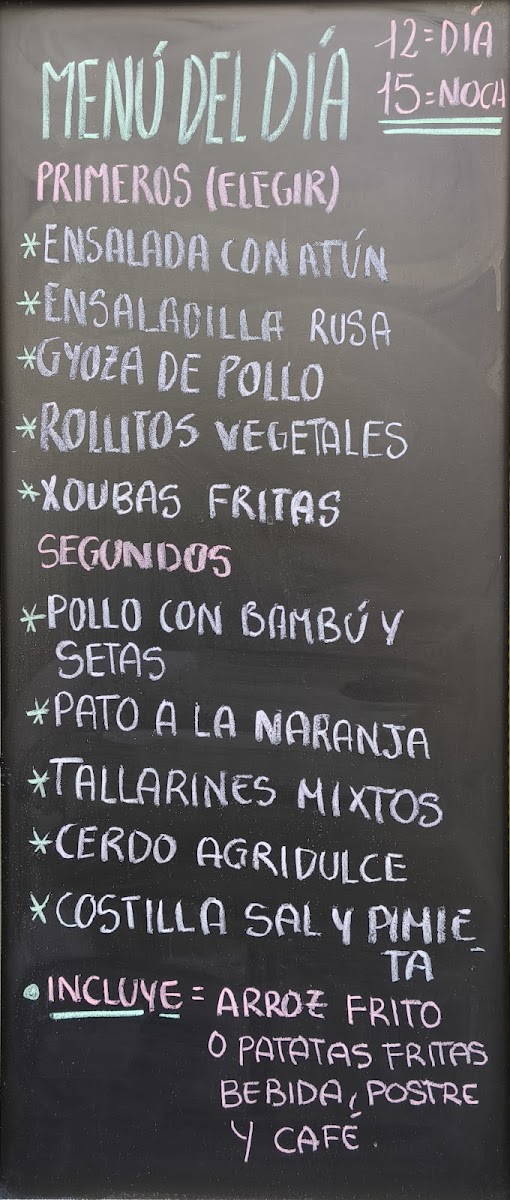 MENÚ DEL DÍA
12=DÍA
15=NOCH
PRIMEROS (ELEGIR)
*ENSALADA CON ATÚN
*ENSALADILLA RUSA
*GYOZA DE POLLO
*ROLLITOS VEGETALES
*XOUBAS FRITAS
SEGUNDOS
*POLLO CON BAMBÚ Y
SETAS
*PATO A LA NARANJA
*TALLARINES MIXTOS
*CERDO AGRIDULCE
*COSTILLA SAL Y PIMIE_
TA
• INCLUYE = ARROZ FRITO
O PATATAS FRITAS
BEBIDA, POSTRE
Y CAFÉ.